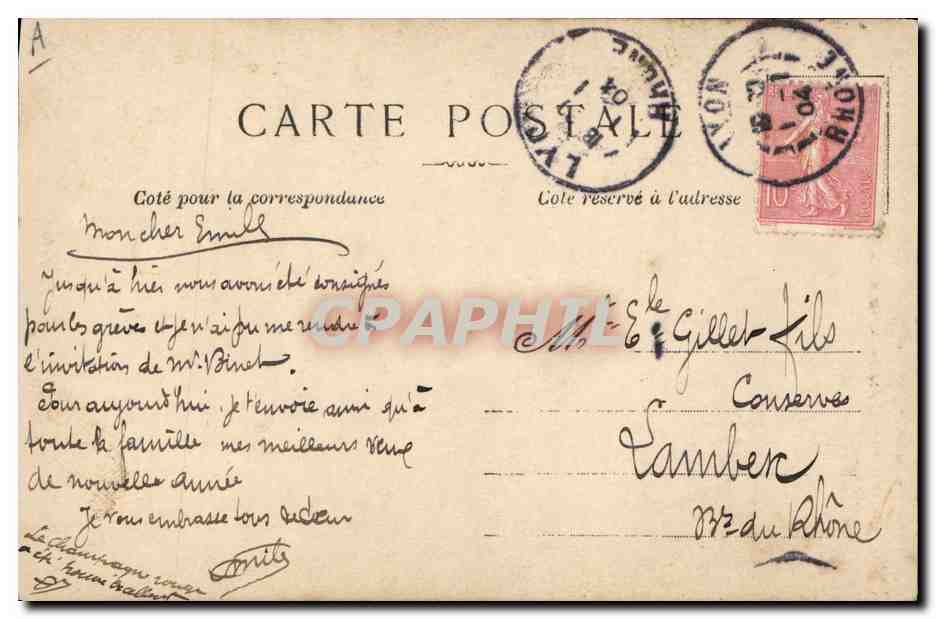 A
CARTE POSTALE
LYON RHONE
1 04
LYON RHONE
1 04
10
Coté pour la correspondance
Coté réservé à l'adresse
Mon cher Emile
Jusqu'à hier nous avons été consignés
pour les grèves et je n'ai pu me rendre à
l'invitation de Mr. Binet.
Pour aujourd'hui, je t'envoie ainsi qu'à
toute la famille mes meilleurs vœux
de nouvelle année
Je vous embrasse tous de cœur
Emile
Le champagne rouge
a été trouvé excellent
Mr Ele Gillet fils
Conserves
Lambesc
Bes du Rhône
CPAPHIL